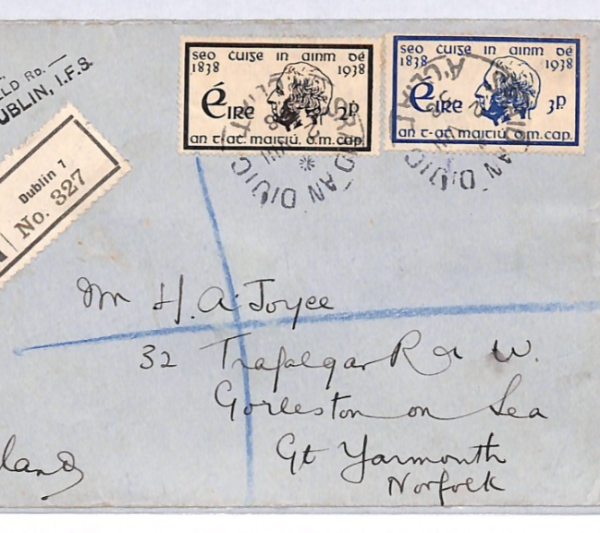 ELD RD. —
UBLIN, I.F.S.
Dublin 7
No. 327
seo cuize in ainm dé
1838 1938
Éire 2p
an t-at. maitiú. o.m. cap.
seo cuize in ainm dé
1838 1938
Éire 3p
an t-at. maitiú. o.m. cap.
Mr H. A. Joyce
32 Trafalgar Rd W.
Gorleston on Sea
Gt Yarmouth
Norfolk
land